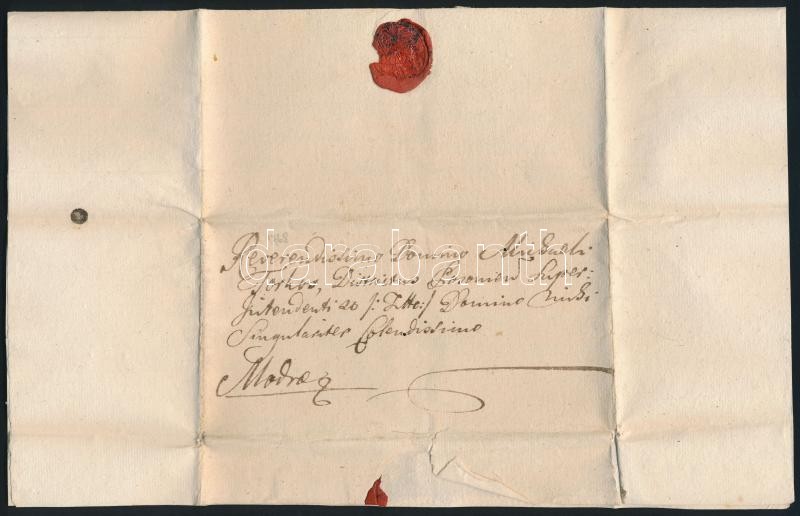 Reverendissimo Domino Michaeli
Torkos, Districtus Posonien Super-
Intendenti &c /: Titto :/ Domino mihi
Singulariter Colendissimo
Modræ
darabanth